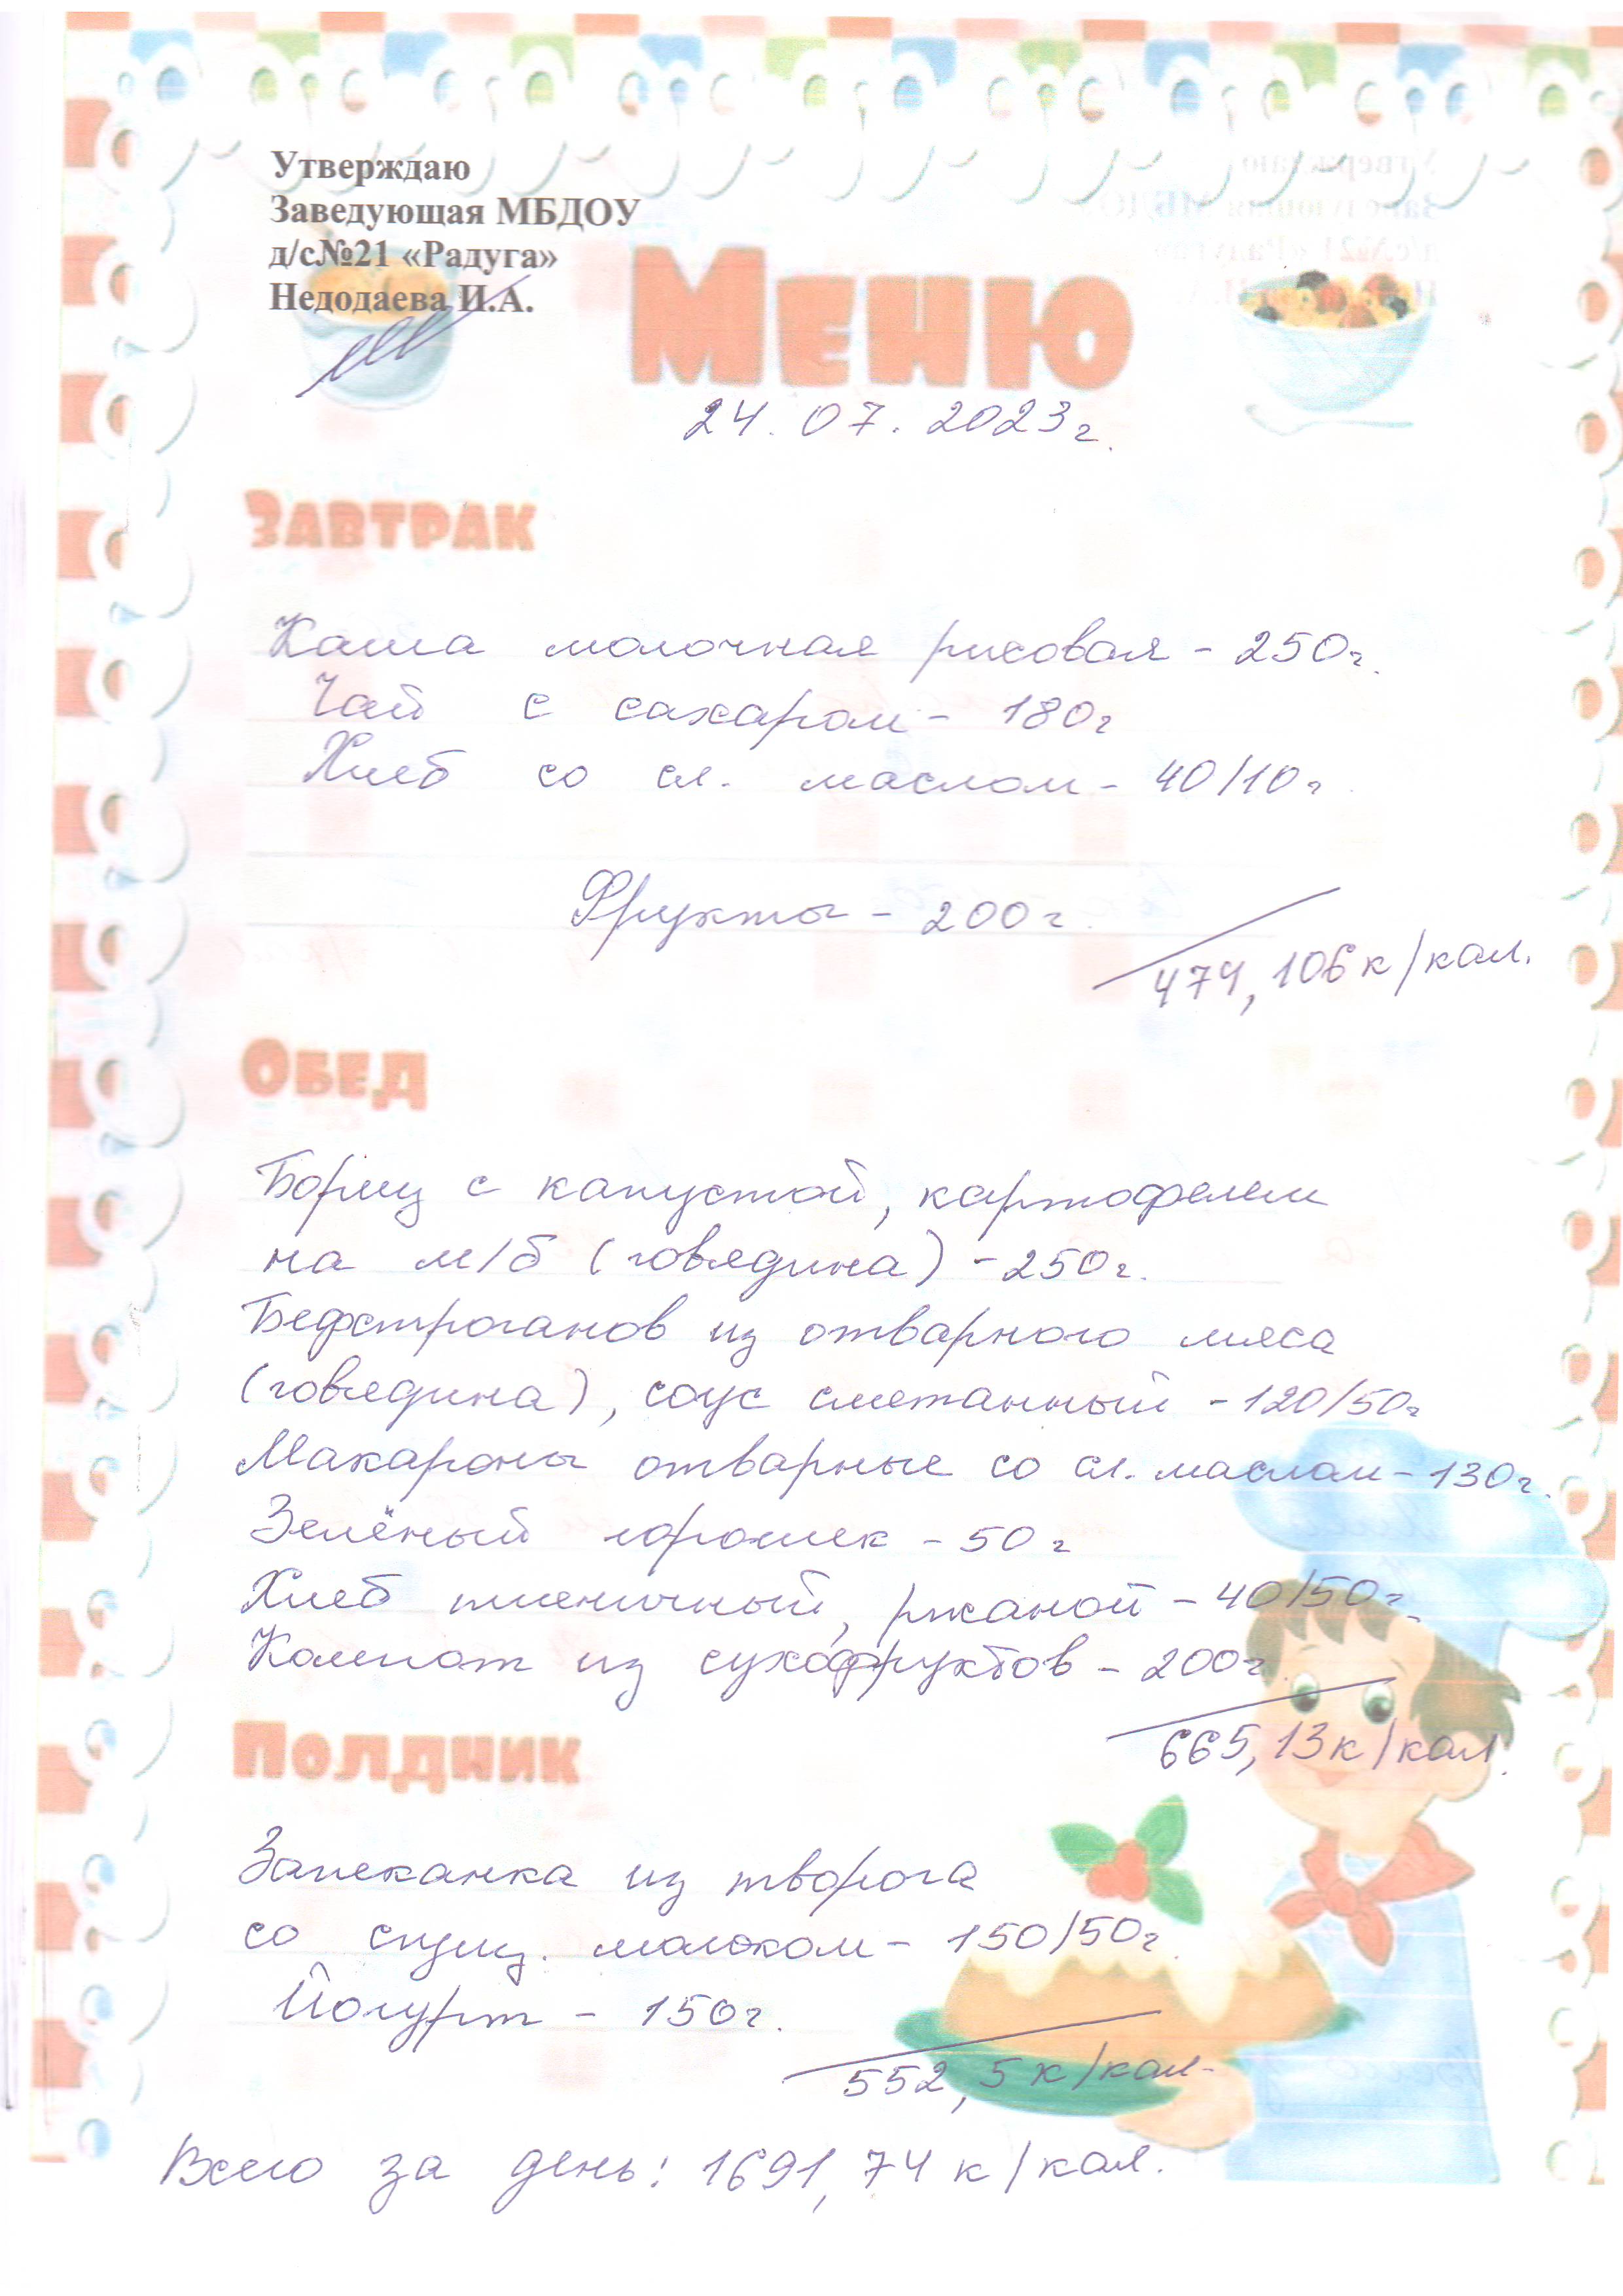 Утверждаю
Заведующая МБДОУ
д/с№21 «Радуга»
Недодаева И.А.
Меню
24.07.2023г.
Завтрак
Каша молочная рисовая - 250г.
Чай с сахаром - 180г
Хлеб со сл. маслом - 40/10г
Фрукты - 200г.
474,106 к/кал.
Обед
Борщ с капустой, картофелем
на м/б (говядина) - 250г.
Бефстроганов из отварного мяса
(говядина), соус сметанный - 120/50г
Макароны отварные со сл. маслом - 130г.
Зелёный горошек - 50г
Хлеб пшеничный, ржаной - 40/50г.
Компот из сухофруктов - 200г
665,13 к/кал.
Полдник
Запеканка из творога
со сгущ. молоком - 150/50г.
Йогурт - 150г.
552,5 к/кал.
Всего за день: 1691,74 к/кал.